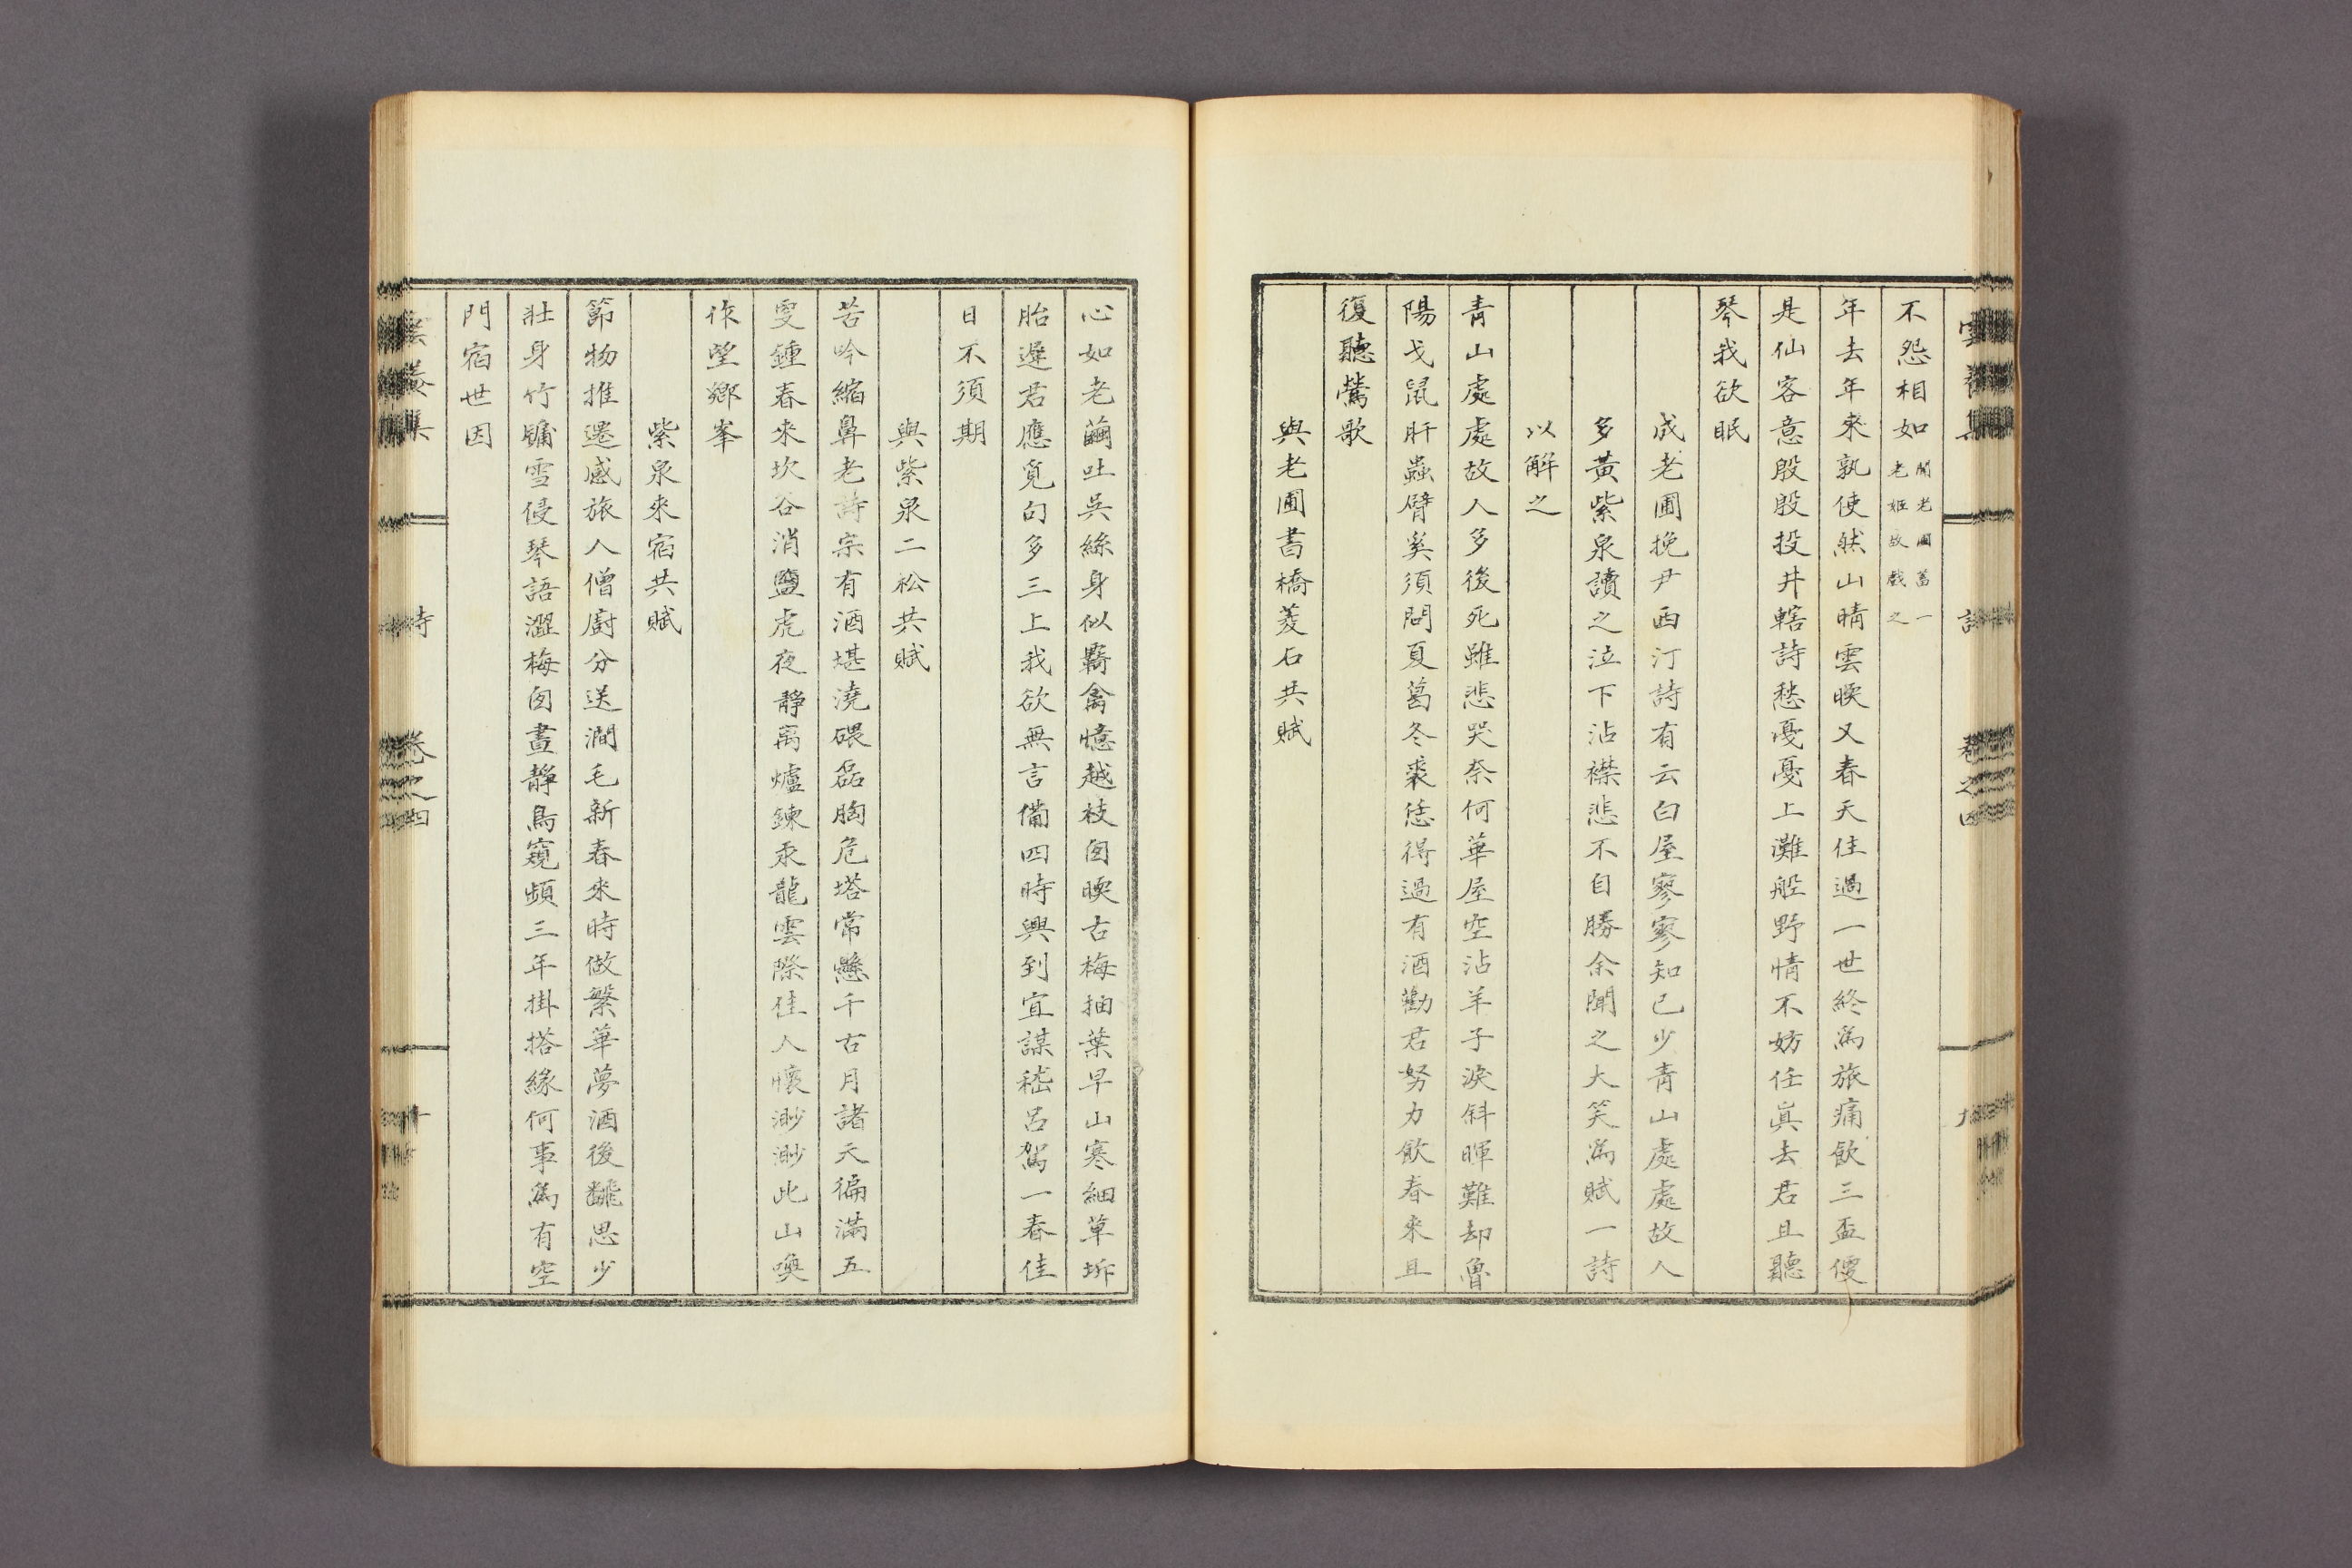 不怨相如 聞老圃蓄一老姬故戲之
年去年來孰使然山晴雲暖又春天住過一世終爲旅痛飮三盃便
是仙客意殷殷投井轄詩愁憂憂上灘船野情不妨任眞去君且聽
琴我欲眠
成老圃挽尹西汀詩有云白屋寥寥知已少靑山處處故人
多黃紫泉讀之泣下沾襟悲不自勝余聞之大笑爲賦一詩
以解之
靑山處處故人多後死雖悲哭奈何華屋空沾羊子淚斜暉難却魯
陽戈鼠肝蟲臂奚須問夏葛冬裘恁得過有酒勸君努力飮春來且
復聽鶯歌
與老圃書橋菱石共賦
心如老繭吐吳絲身似羇禽憶越枝囱暖古梅抽葉早山寒細草坼
胎遲君應覓句多三上我欲無言備四時興到宜謀嵇呂駕一春佳
日不須期
與紫泉二松共賦
苦吟縮鼻老詩宗有酒堪澆磈磊胸危塔常懸千古月諸天徧滿五
更鍾春來坎谷消鹽虎夜靜萬爐鍊汞龍雲際佳人懷渺渺此山喚
作望鄉峯
紫泉來宿共賦
節物推遷感旅人僧廚分送澗毛新春來時做繁華夢酒後飜思少
壯身竹牖雪侵琴語澀梅囱晝靜鳥窺頻三年掛搭緣何事爲有空
門宿世因
詩
卷之四
十